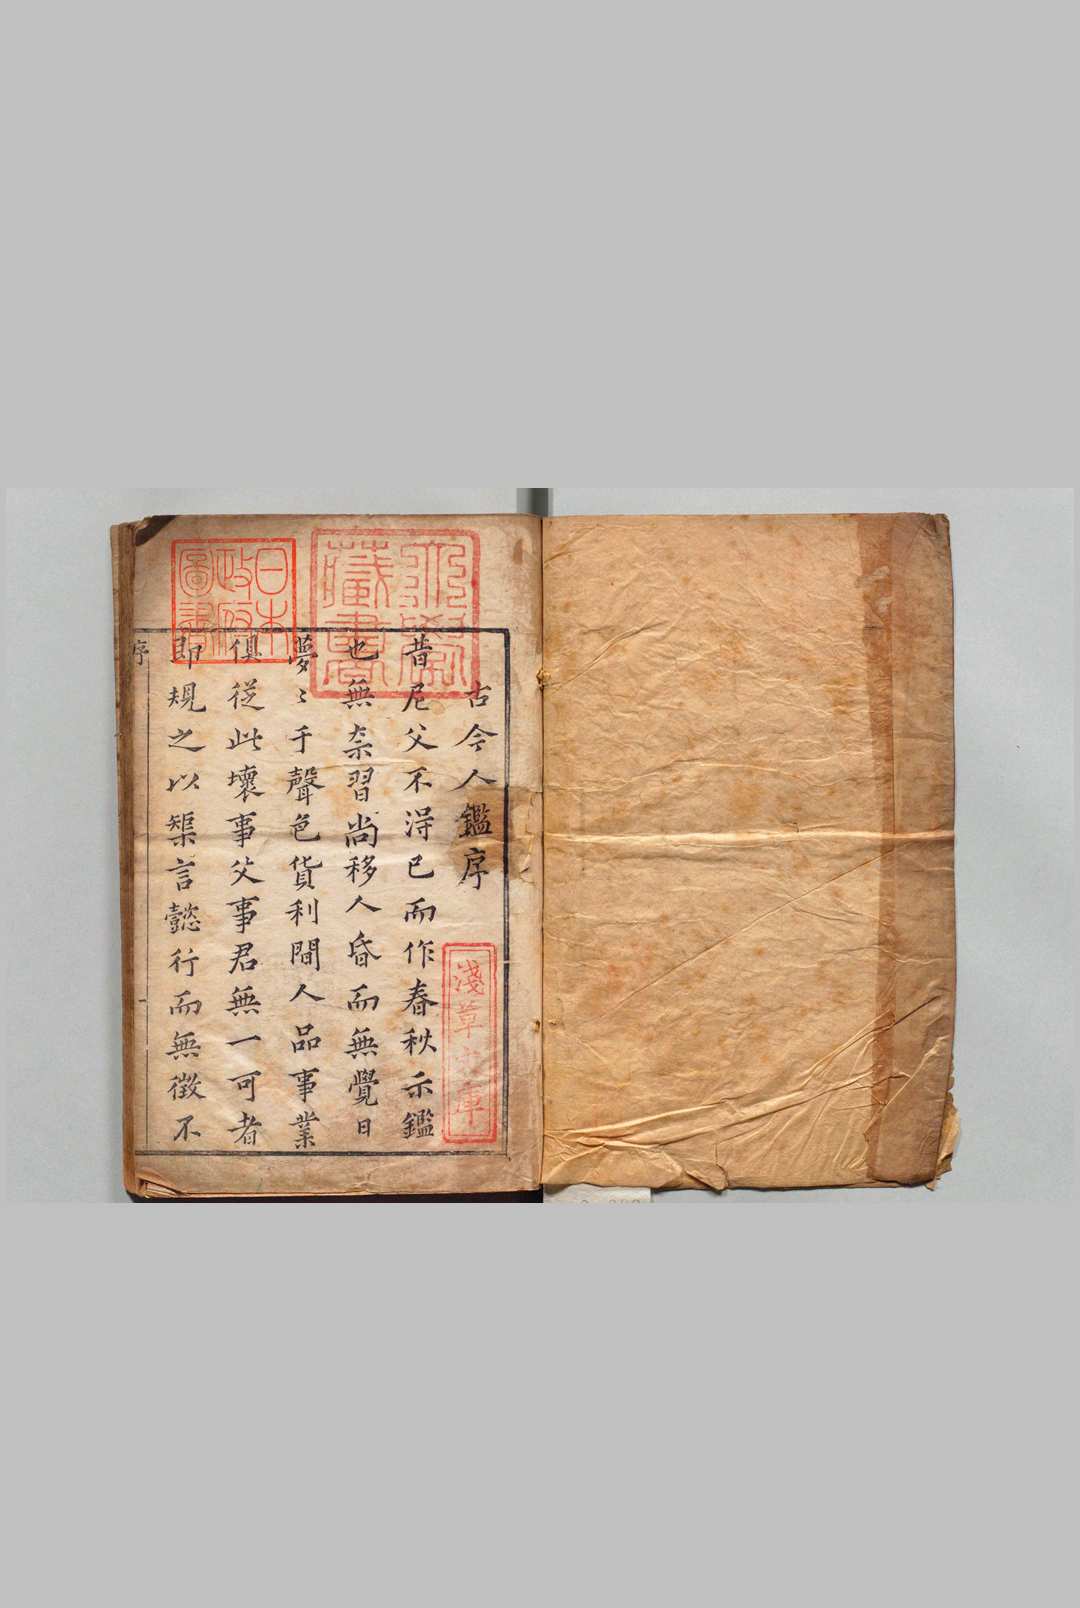 古今人鑑序
昔尼父不得已而作春秋示鑑
也無柰習尚移人昏而無覺日
夢〻于聲色貨利間人品事業
俱從此壞事父事君無一可者
即規之以榘言懿行而無徵不
序
日本
政府
圖書
藏書
淺草文庫